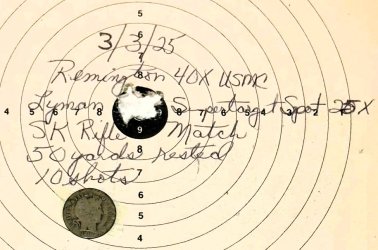 5
3/3/25
Remington 40X USMC
Lyman Supertarget Spot 25X
SK Rifle Match
50 yards rested
10 shots
4 5 6 7
6 5 4 3 2
9
8
7
6
5
4